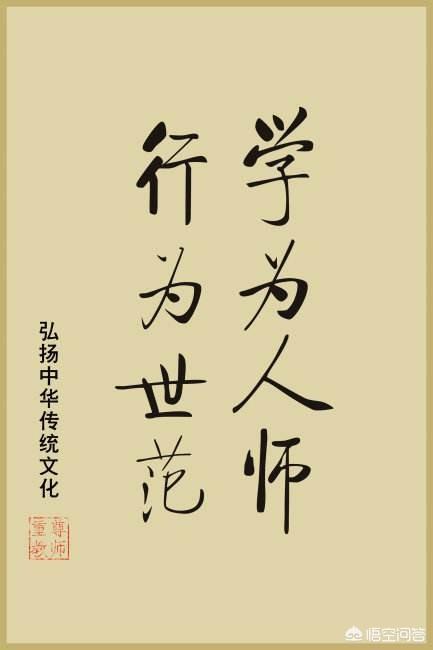 学为人师
行为世范
弘扬中华传统文化
尊师
重教
悟空问答